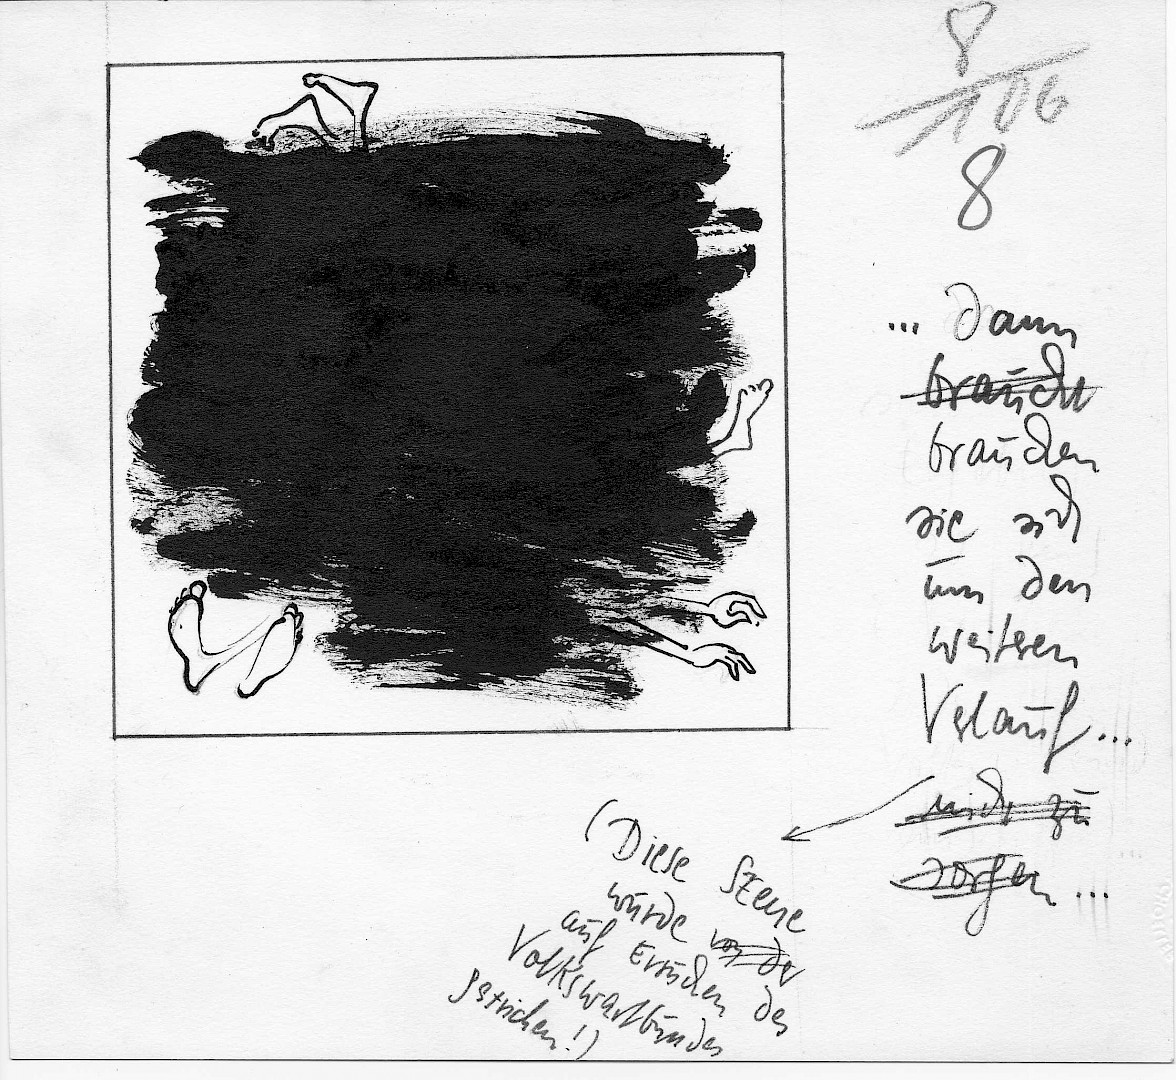 8
106
8
... Dann
braucht
brauchen
sie sich
um den
weiteren
Verlauf ...
nicht zu
sorgen ...
(Diese Szene
wurde von der
auf Ersuchen des
Volkswartbundes
gestrichen!)